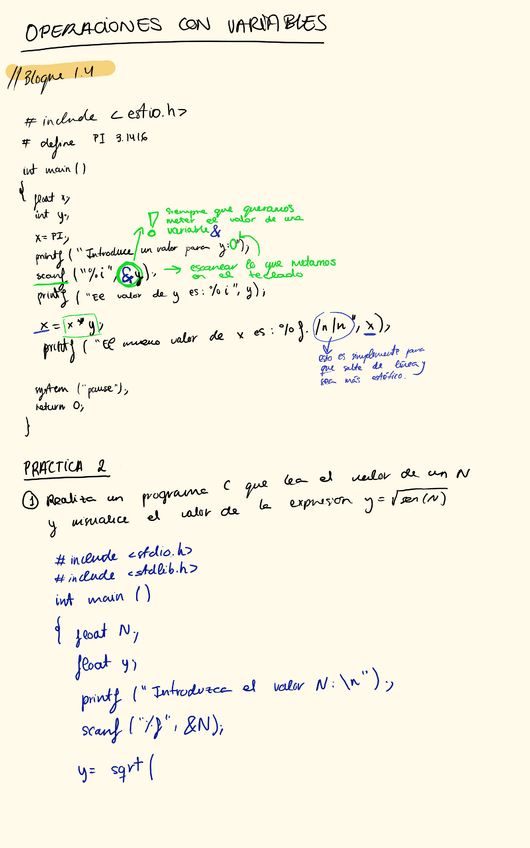 OPERACIONES CON VARIABLES
//Bloque 1.4
# include < estio.h>
# define PI 3.1416
int main ()
{
float x;
int y;
x = PI;
printf ("Introduce un valor para y: 0");
siempre que queramos
meter el valor de una
variable &
scanf ("%i", &y); → escanear lo que metamos
en el teclado
printf ("El valor de y es: %i", y);
x = x * y;
printf ("El nuevo valor de x es: %f. /n/n", x);
esto es simplemente para
que salte de línea y
sea más estético.
system ("pause");
return 0;
}
PRÁCTICA 2
① Realiza un programa C que lea el valor de un N
y visualice el valor de la expresión y = √sen(N)
# include <stdio.h>
# include <stdlib.h>
int main ()
{ float N;
float y;
printf ("Introduzca el valor N: \n");
scanf ("%f", &N);
y = sqrt (